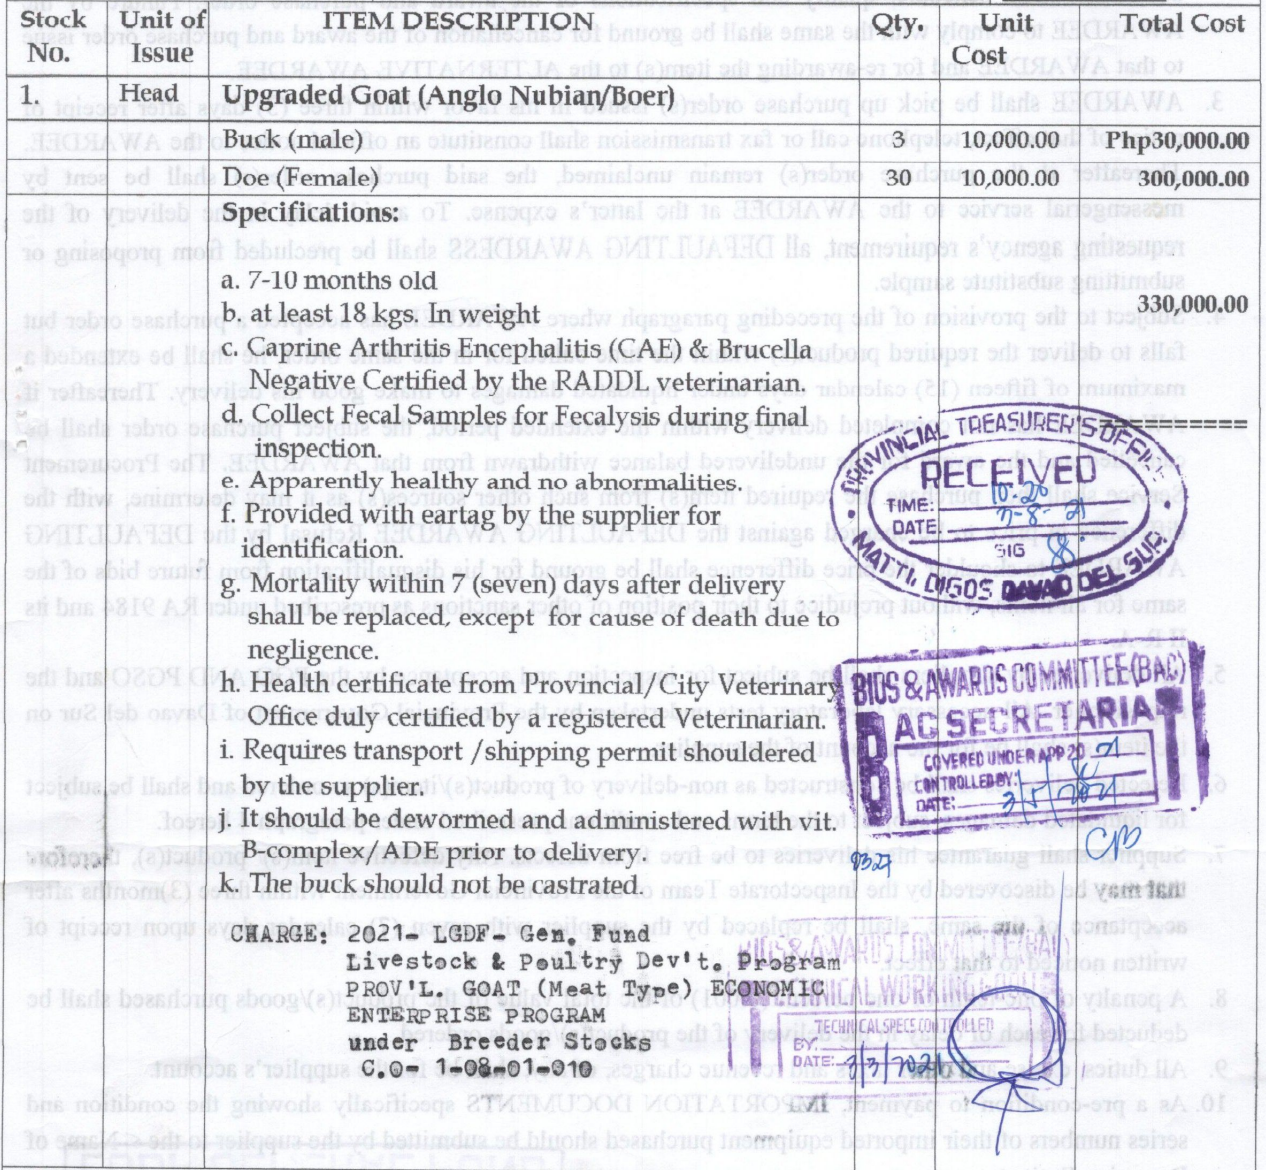 Stock No. Unit of Issue ITEM DESCRIPTION Qty. Unit Cost Total Cost
1. Head Upgraded Goat (Anglo Nubian/Boer)
Buck (male) 3 10,000.00 Php30,000.00
Doe (Female) 30 10,000.00 300,000.00
Specifications:
a. 7-10 months old
330,000.00
b. at least 18 kgs. In weight
c. Caprine Arthritis Encephalitis (CAE) & Brucella
Negative Certified by the RADDL veterinarian.
d. Collect Fecal Samples for Fecalysis during final
inspection.
e. Apparently healthy and no abnormalities.
f. Provided with eartag by the supplier for
identification.
g. Mortality within 7 (seven) days after delivery
shall be replaced, except for cause of death due to
negligence.
h. Health certificate from Provincial/City Veterinary
Office duly certified by a registered Veterinarian.
i. Requires transport /shipping permit shouldered
by the supplier.
j. It should be dewormed and administered with vit.
B-complex/ADE prior to delivery.
k. The buck should not be castrated.
CHARGE: 2021- LGDF- Gen. Fund
Livestock & Poultry Dev't. Program
PROV'L. GOAT (Meat Type) ECONOMIC
ENTERPRISE PROGRAM
under Breeder Stocks
C.O- 1-08-01-010
PROVINCIAL TREASURER'S OFFICE
RECEIVED
TIME: 10:20
DATE:
SIG
MATTI, DIGOS DAVAO DEL SUR
BIDS & AWARDS COMMITTEE (BAC)
BAC SECRETARIAT
COVERED UNDER APP 2021
CONTROLLED BY:
DATE:
0327
BIDS & AWARDS COMMITTEE (BAC)
TECHNICAL WORKING GROUP
TECHNICAL SPECS CONTROLLED
BY:
DATE: